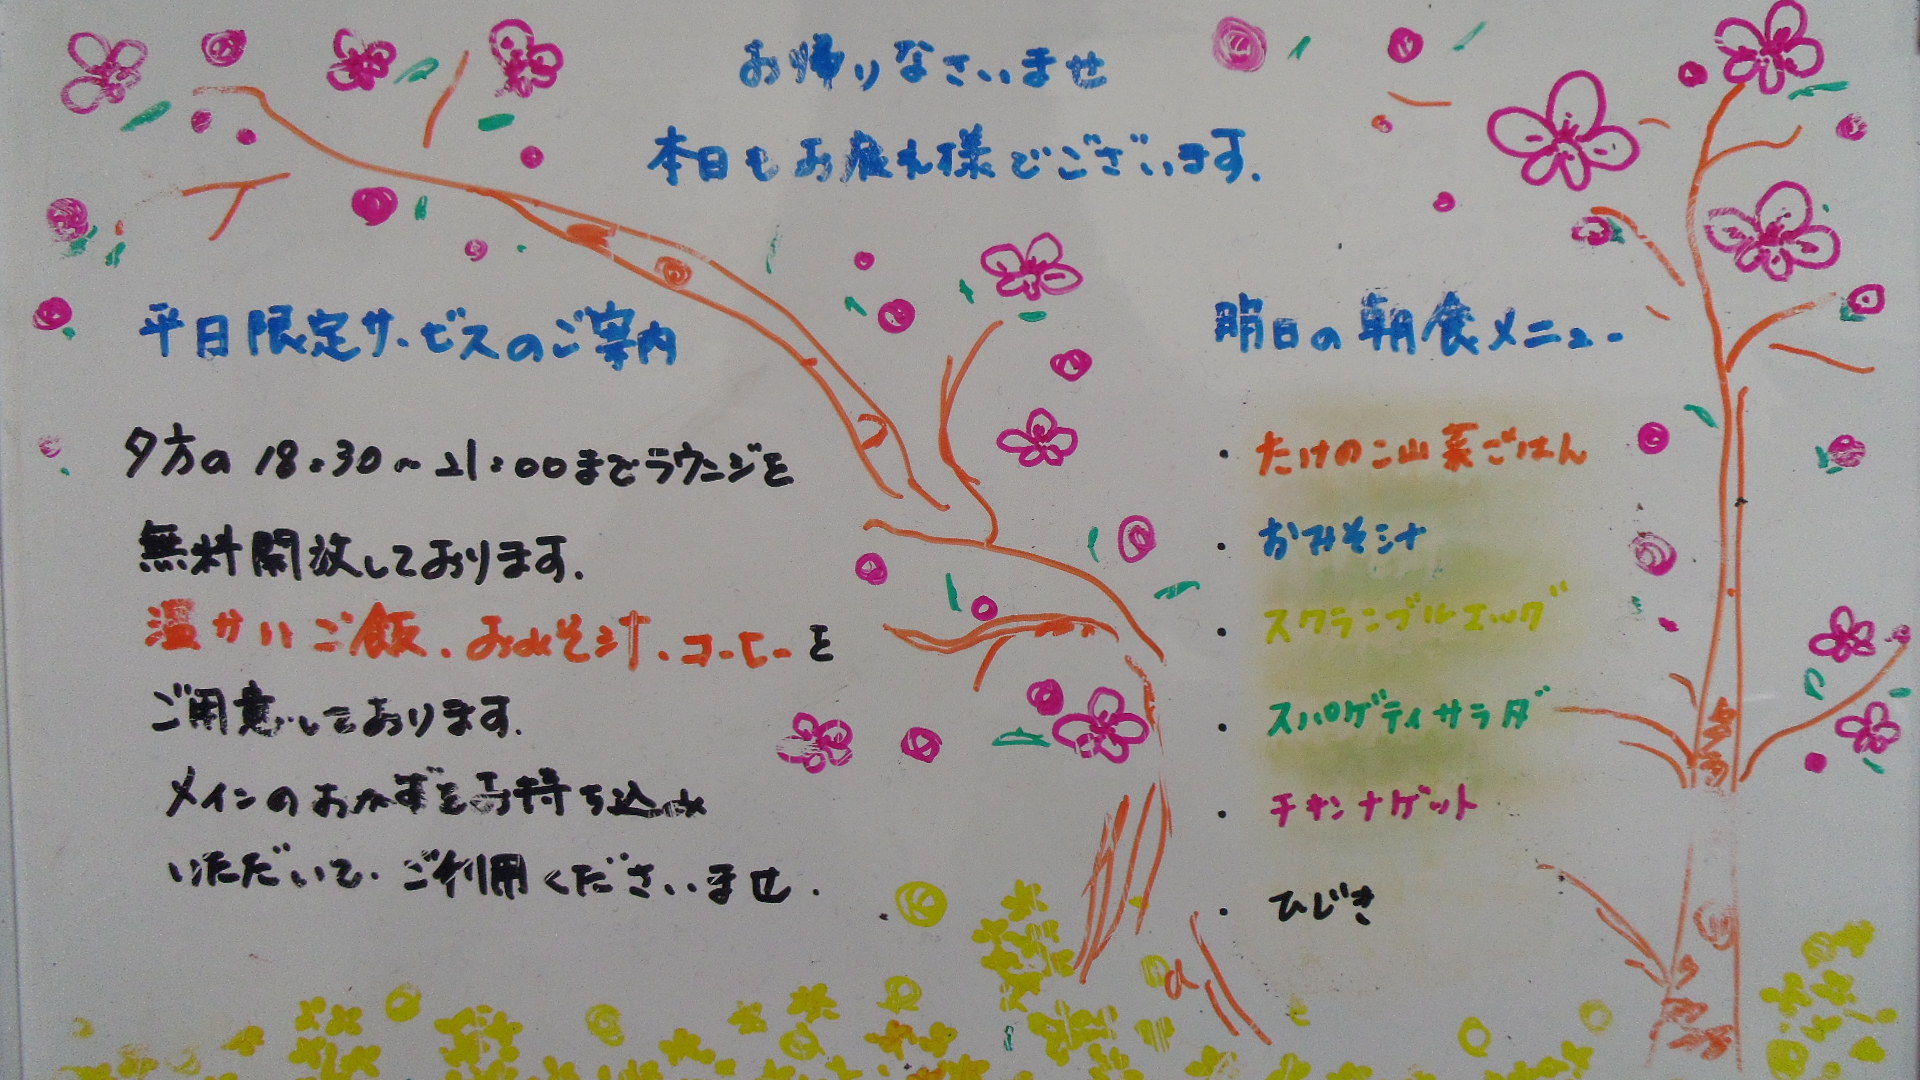 お帰りなさいませ
本日もお疲れ様でございます.
平日限定サービスのご案内
夕方の18:30～21:00までラウンジを
無料開放しております.
温かいご飯、おみそ汁、コーヒーを
ご用意しております.
メインのおかずをお持ち込み
いただいて、ご利用くださいませ.
明日の朝食メニュー
・たけのこ山菜ごはん
・おみそ汁
・スクランブルエッグ
・スパゲティサラダ
・チキンナゲット
・ひじき